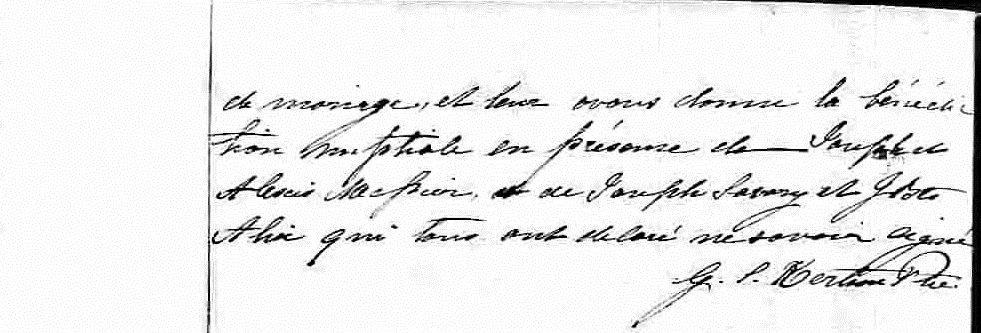 de mariage, et leur avons donné la bénédic
tion nuptiale en présence de Joseph et
Alexis et de Joseph Savary et
Alix qui tous ont déclaré ne savoir signé
G. S. Ptre.